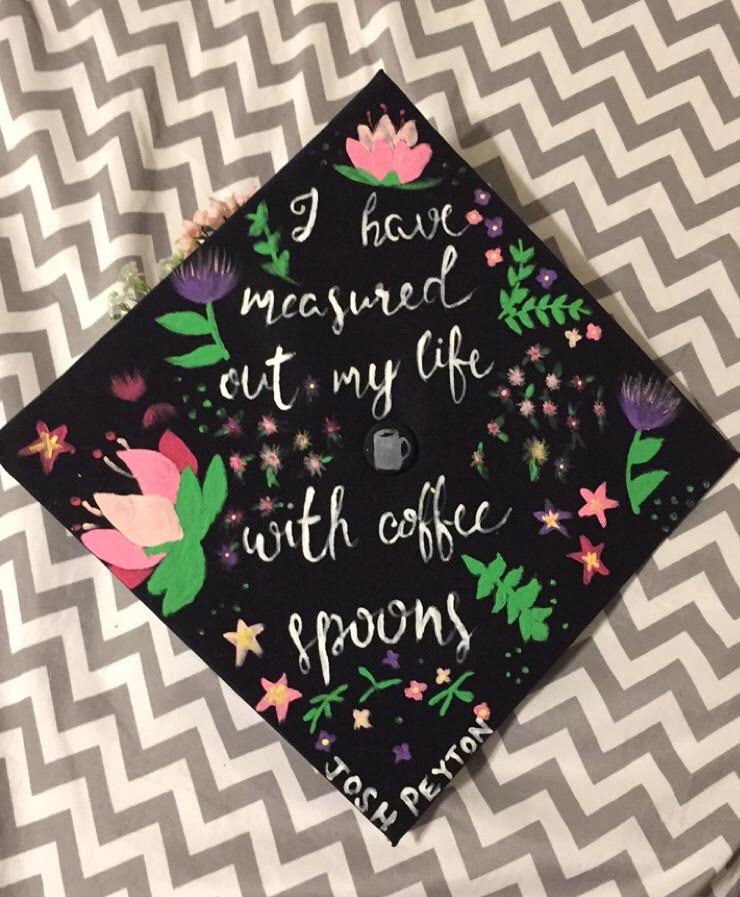 I have
measured
out my life
with coffee
spoons
JOSH PEYTON